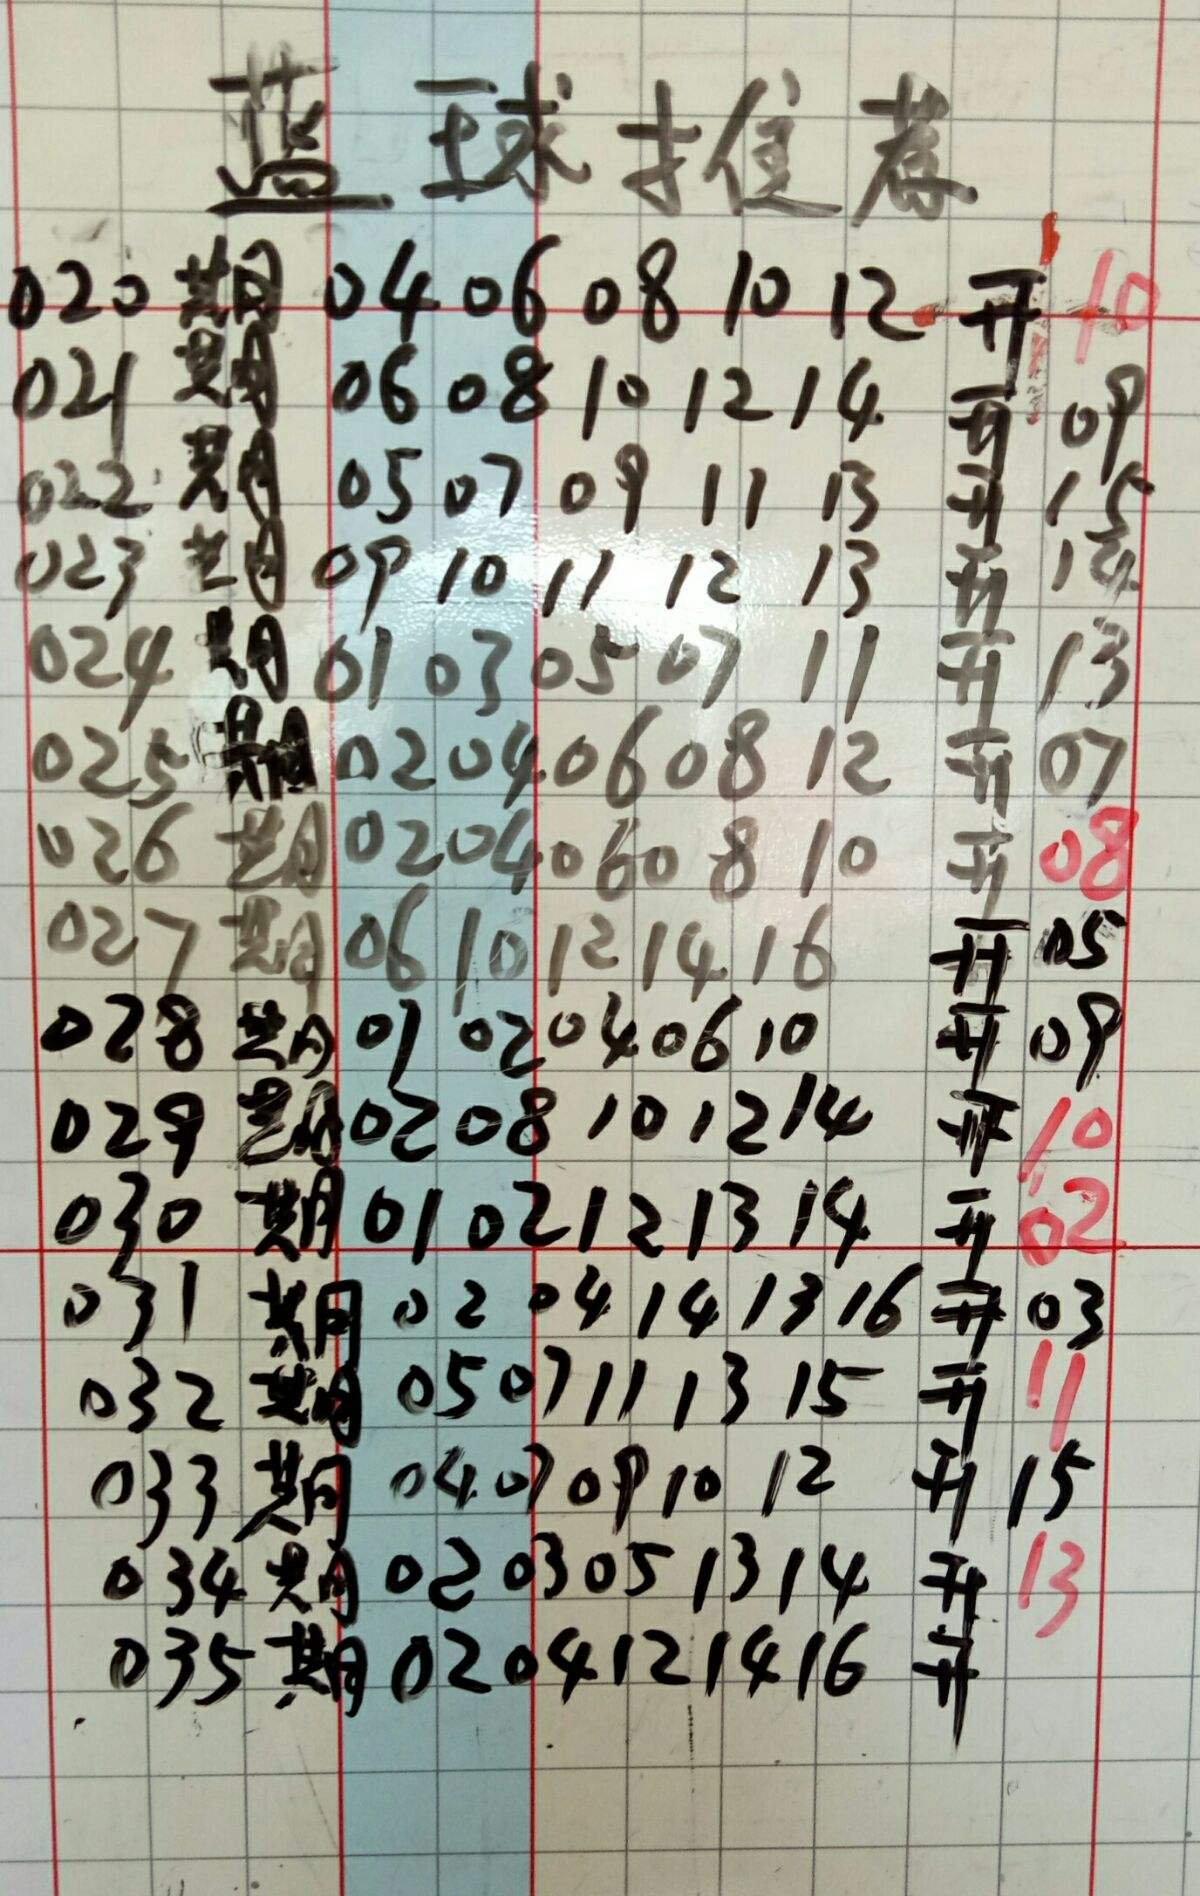 蓝球推荐
020期 04 06 08 10 12 开 10
021期 06 08 10 12 14 开 09
022期 05 07 09 11 13 开 15
023期 09 10 11 12 13 开 14
024期 01 03 05 07 11 开 13
025期 02 04 06 08 12 开 07
026期 02 04 06 08 10 开 08
027期 06 10 12 14 16 开 05
028期 01 02 04 06 10 开 09
029期 02 08 10 12 14 开 10
030期 01 02 12 13 14 开 02
031期 02 04 14 13 16 开 03
032期 05 07 11 13 15 开 11
033期 04 07 09 10 12 开 15
034期 02 03 05 13 14 开 13
035期 02 04 12 14 16 开